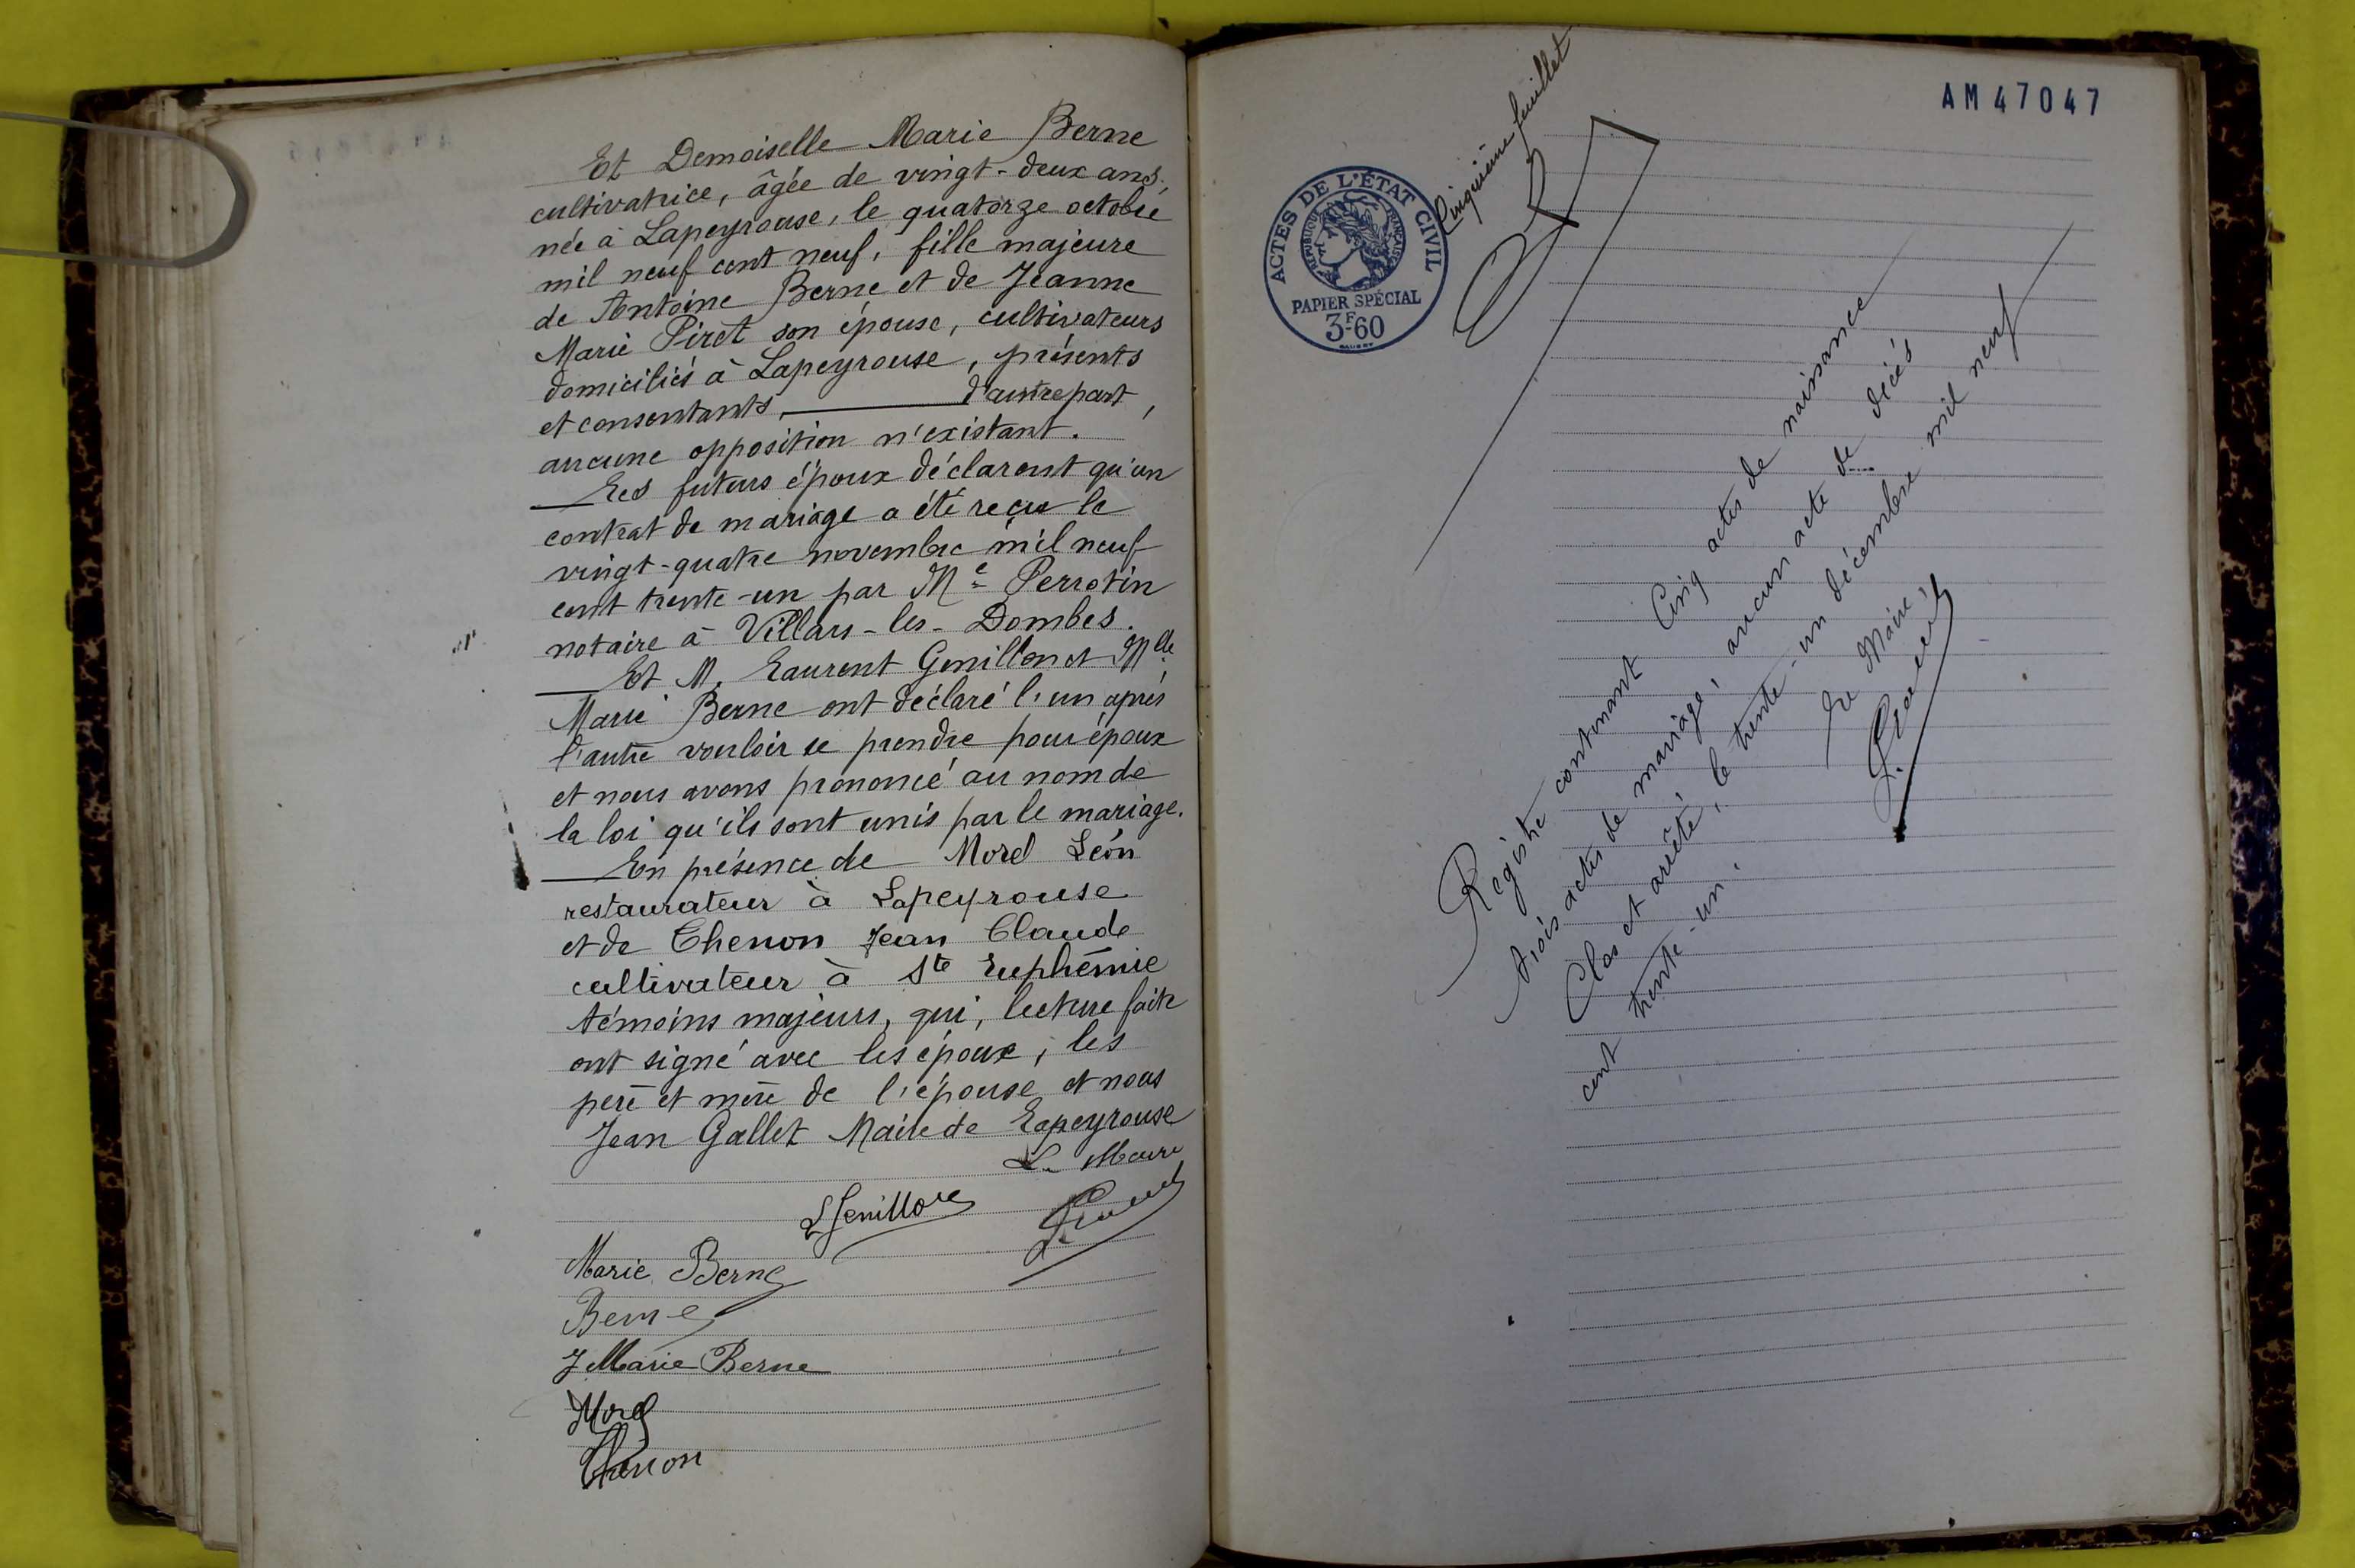 Et Demoiselle Marie Berne
cultivatrice, âgée de vingt-deux ans,
née à Lapeyrouse, le quatorze octobre
mil neuf cent neuf, fille majeure
de Antoine Berne et de Jeanne
Marie Piret son épouse, cultivateurs
domiciliés à Lapeyrouse, présents
et consentants, d'autre part,
aucune opposition n'existant.
Les futurs époux déclarent qu'un
contrat de mariage a été reçu le
vingt-quatre novembre mil neuf
cent trente-un par Me Perrotin
notaire à Villars-les-Dombes.
Et M. Laurent Genillon et Mlle
Marie Berne ont déclaré l'un après
l'autre vouloir se prendre pour époux
et nous avons prononcé au nom de
la loi qu'ils sont unis par le mariage.
En présence de Morel Léon
restaurateur à Lapeyrouse
et de Chenon Jean Claude
cultivateur à Ste Euphémie
témoins majeurs, qui, lecture faite
ont signé avec les époux, les
père et mère de l'épouse et nous
Jean Gallet Maire de Lapeyrouse
Le Maire
L Genillon
Marie Berne
Berne
J Marie Berne
Morel
Chenon
AM47047
Cinquième feuillet
ACTES DE L'ÉTAT CIVIL
RÉPUBLIQUE FRANÇAISE
PAPIER SPÉCIAL
3F-60
Registre contenant Cinq actes de naissance
trois actes de mariage, aucun acte de décès
Clos et arrêté, le trente-un décembre mil neuf
cent trente-un.
Le Maire,